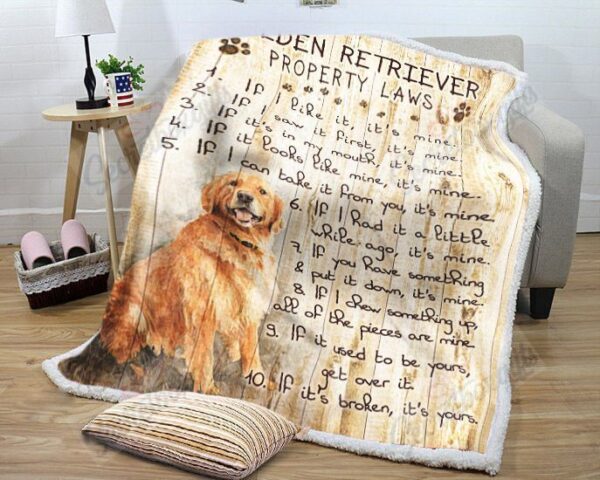 DEN RETRIEVER
PROPERTY LAWS
1. If I like it, it's mine.
2. If I saw it first, it's mine.
3. If it's in my mouth, it's mine.
4. If it looks like mine, it's mine.
5. If I can take it from you, it's mine.
6. If I had it a little
while ago, it's mine.
7. If you have something
& put it down, it's mine.
8. If I chew something up,
all of the pieces are mine.
9. If it used to be yours,
get over it.
10. If it's broken, it's yours.